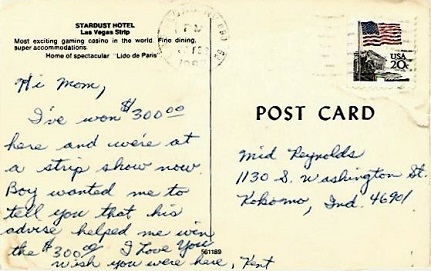 STARDUST HOTEL
Las Vegas Strip
Most exciting gaming casino in the world. Fine dining,
super accommodations.
Home of spectacular "Lido de Paris"
Hi Mom,
I've won $300.00
here and we're at
a strip show now.
Boy wanted me to
tell you that his
advise helped me win
the $300.00. I Love You
wish you were here, Kent
POST CARD
USA
20c
Mid Reynolds
1130 S. Washington St.
Kokomo, Ind. 46901
561189